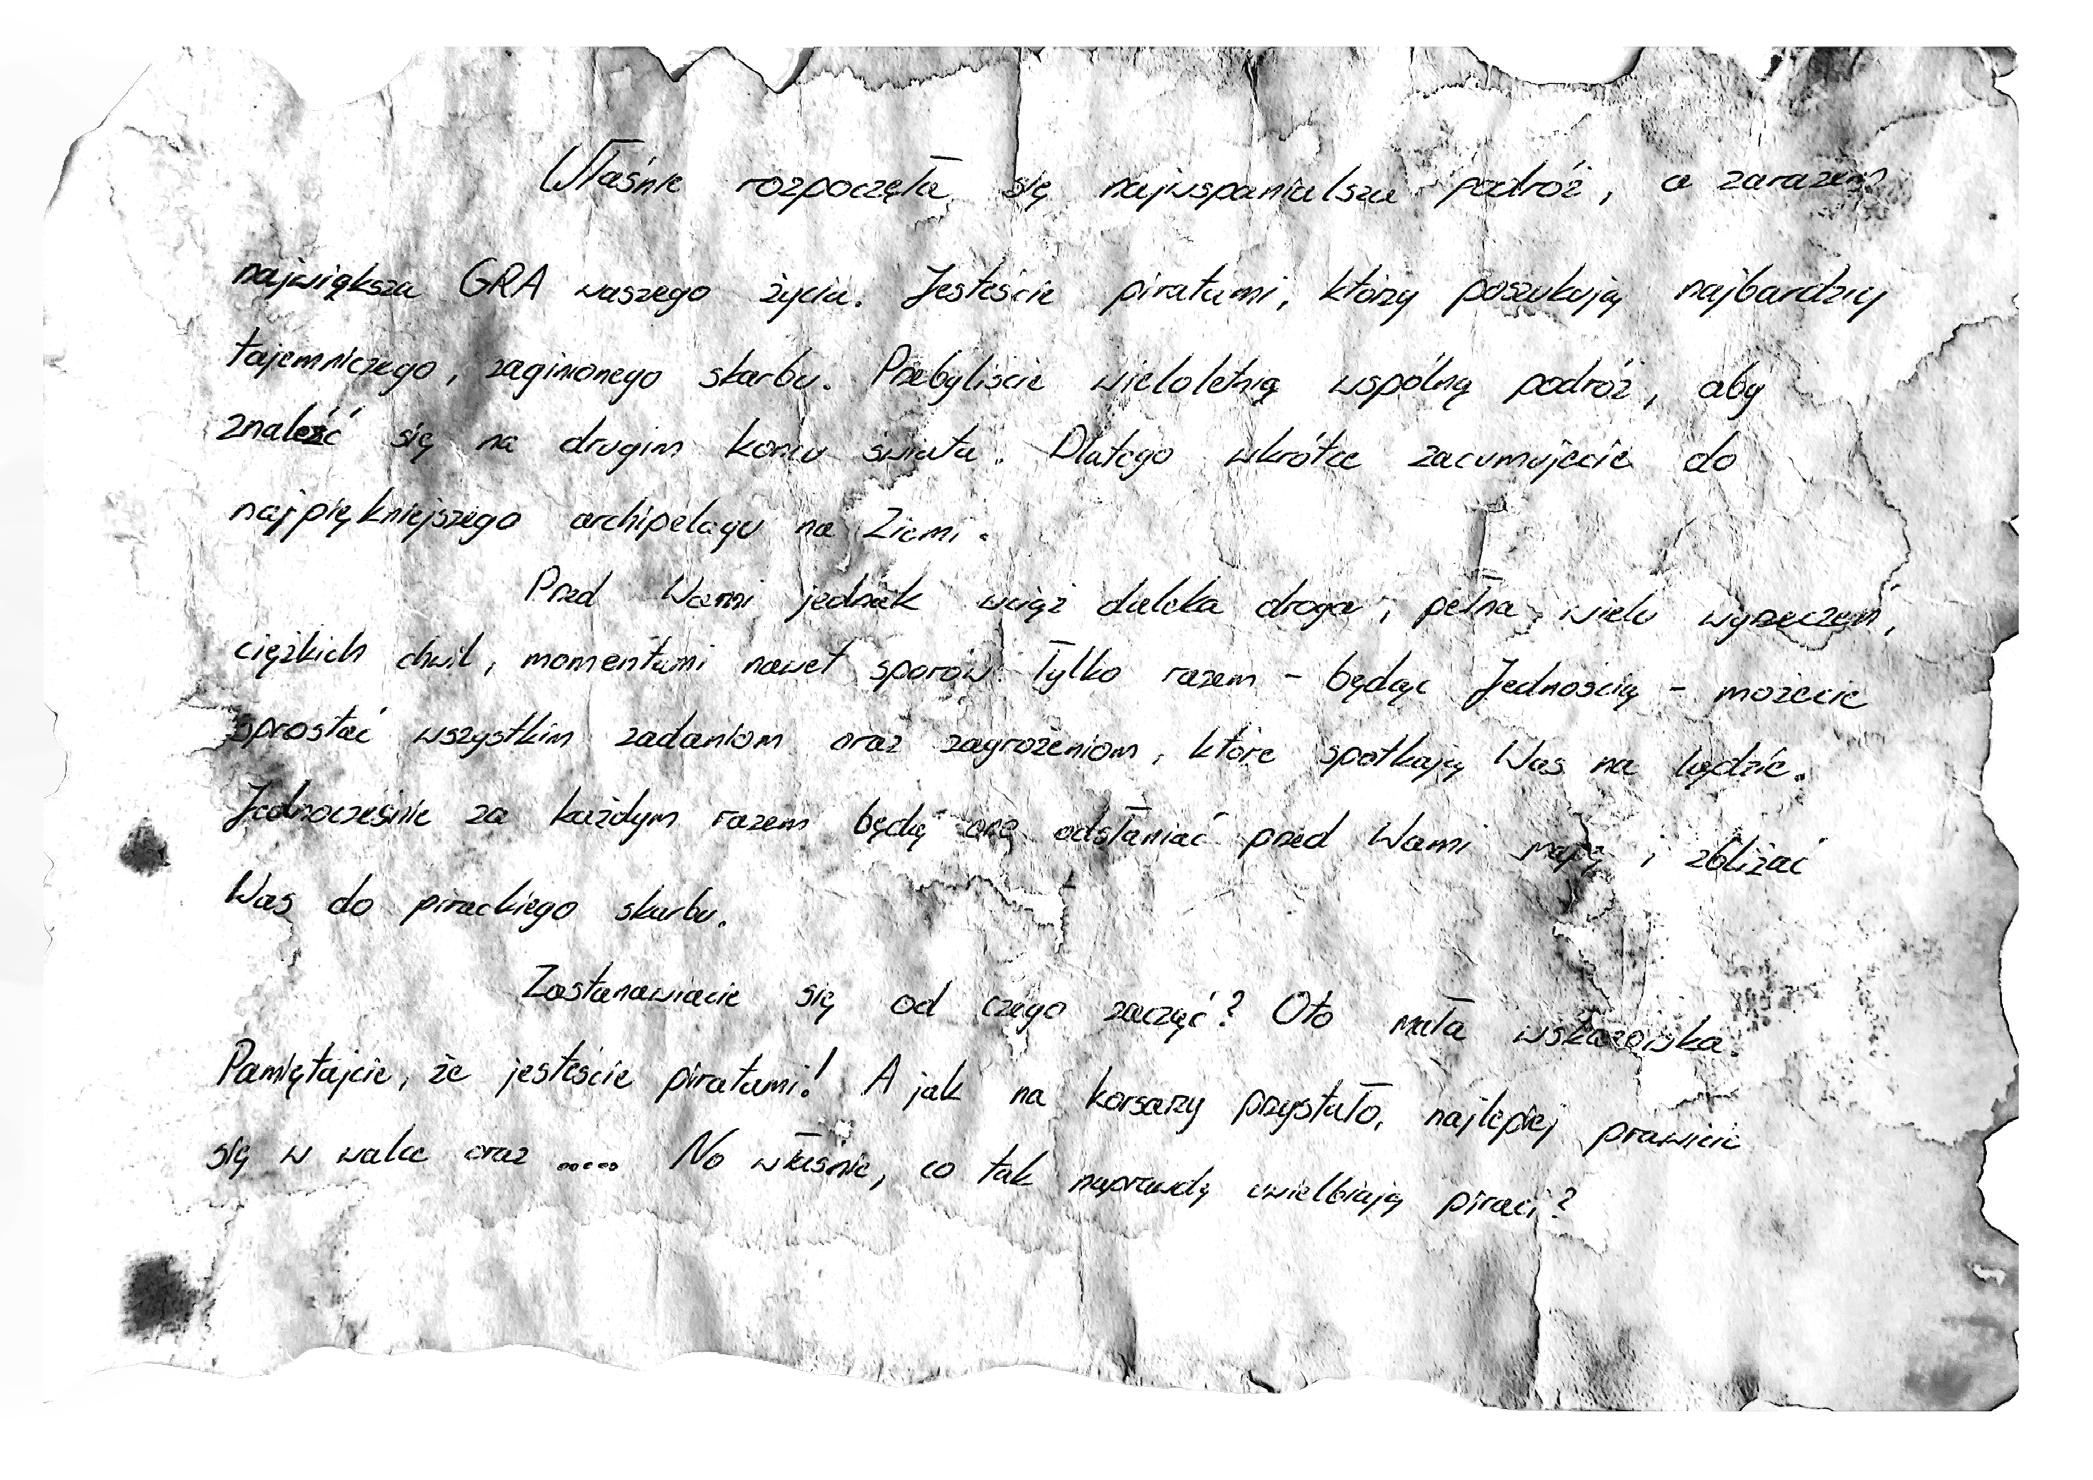 Właśnie rozpoczęła się najwspanialsza podróż, a zarazem
największa GRA waszego życia. Jesteście piratami, którzy poszukują najbardziej
tajemniczego, zaginionego skarbu. Przebyliście wieloletnią wspólną podróż, aby
znaleźć się na drugim końcu świata. Dlatego wkrótce zacumujecie do
najpiękniejszego archipelagu na Ziemi.
Przed Wami jednak wciąż daleka droga, pełna wielu wyrzeczeń,
ciężkich chwil, momentami nawet sporów. Tylko razem - będąc Jednością - możecie
sprostać wszystkim zadaniom oraz zagrożeniom, które spotkają Was na lądzie.
Jednocześnie za każdym razem będą one odsłaniać przed Wami mapę i zbliżać
Was do pirackiego skarbu.
Zastanawiacie się od czego zacząć? Oto mała wskazówka.
Pamiętajcie, że jesteście piratami! A jak na korsarzy przystało, najlepiej prawicie
się w walce oraz ..... No właśnie, co tak naprawdę uwielbiają piraci?